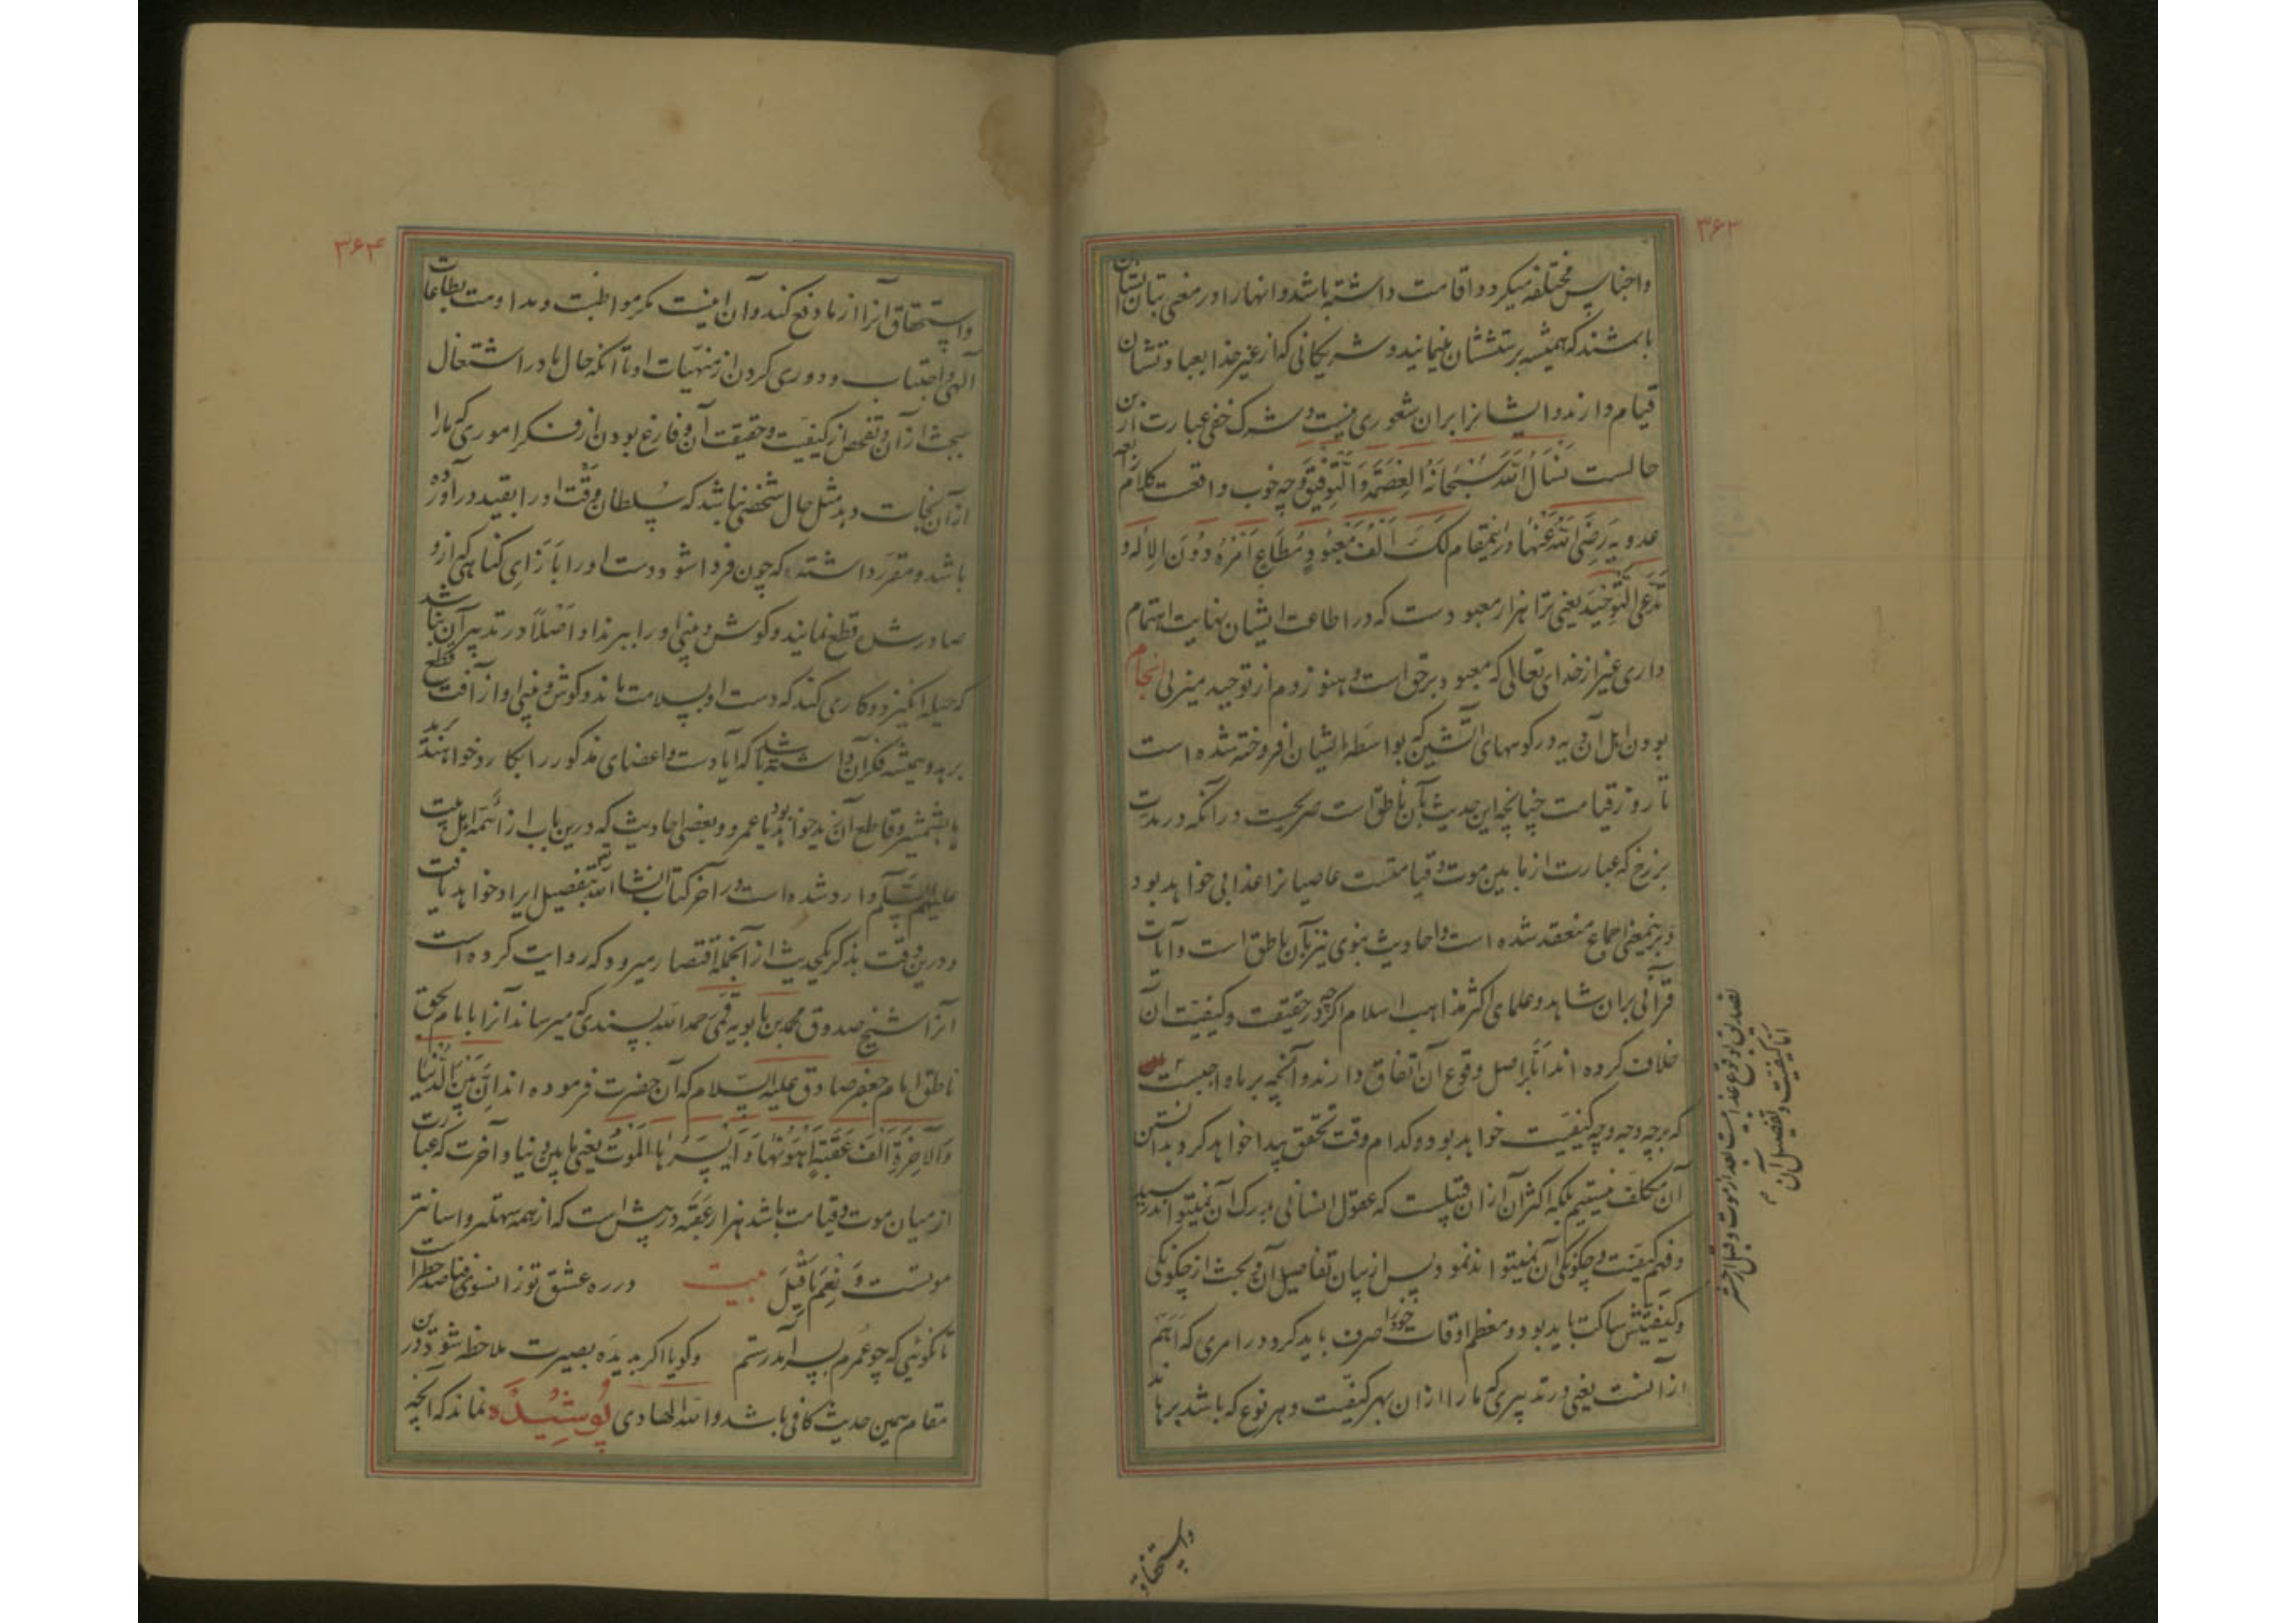 ۳۶۳
واجناس مختلفه میکردد واقامت داشته باشد وانهارا در معنی بتان ایشان
باشند که همیشه پرستششان مینمایند و شریکانی که از غیر خدا بعبادتشان
قیام دارند وایشانرا بران شعوری نیست و شرک خفی عبارت ازین
حالست نَسْأَلُ اللّٰهَ سُبْحَانَهُ الْعِصْمَةَ وَالتَّوْفِیقَ وچه خوب واقعست کلام رابعه
عدویه رَضِیَ اللّٰهُ عَنْهَا درینمقام لَکَ اَلْفُ مَعْبُودٍ مُطَاعٍ اَمْرُهُ دُونَ الْاِلٰهِ وَ
تَدَّعِی التَّوْحِیدَ یعنی ترا هزار معبودست که در اطاعت ایشان نهایت اهتمام
داری غیر از خدای تعالی که معبود برحق است وهنوز دم از توحید میزنی انجام
بودن اهل آن قریه در کوههای آتشین که بواسطه ایشان افروخته شده است
تا روز قیامت چنانچه این حدیث بآن ناطق است صریحست در انکه در مدت
برزخ که عبارت از مابین موت و قیامتست عاصیانرا عذابی خواهد بود
و برینمعنی اجماع منعقد شده است واحادیث نبوی نیز بآن ناطق است وآیات
قرآنی بران شاهد و علمای اکثر مذاهب اسلام اکرچه در حقیقت وکیفیت آن
خلاف کرده اند امّا بر اصل وقوع آن اتفاق دارند وآنچه بر ما واجبست
که بر چه وجه و چه کیفیت خواهد بود و کدام وقت تحقق پیدا خواهد کرد و بدانستن
آن مکلف نیستیم بلکه اکثر آن ازان قبیلست که عقول انسانی بدرک آن نمیتواند رسید
وفهم کیفیت و چکونکی آن نمیتواند نمود پس از بیان تفاصیل آن و بحث از چکونکی
وکیفیتش ساکت باید بود و معظم اوقات خودرا صرف باید کرد در امری که اهم
ازانست یعنی در تدبیری که مارا ازان بهر کیفیت و هر نوع که باشد برهاند
تصدیق بوقوع عذابیست بعد از موت و قبل از حشر
امّا کیفیت و تفصیل آن
واستحقاق
۳۶۴
واستحقاق آنرا از ما دفع کند وآن نیست مکر مواظبت و مداومت بطاعات
الهی واجتناب و دوری کردن از منهیّات او تا آنکه حال ما در اشتغال
ببحث ازان و تفحص از کیفیت و حقیقت آن و فارغ بودن از فکر اموری که مارا
ازان نجات دهد مثل حال شخصی نباشد که سلطان وقت اورا بقید درآورده
باشد و مقرر داشته که چون فردا شود دست اورا بازای کناهی که ازو
صادر شده قطع نمایند و کوش و بینی اورا ببرند واو اصلاً در تدبیر آن نباشد
که حیله انکیزد و کاری کند که دست او بسلامت ماند و کوش و بینی او از آفت قطع
برهد و همیشه فکر آن داشته باشد که آیا دست واعضای مذکور را بکارد خواهند برید
یا بشمشیر و قاطع آن زید خواهد بود یا عمرو و بعضی احادیث که درین باب از ائمه اهل بیت
علیهم السّلام وارد شده است در آخر کتاب انشاء اللّٰه تعالی بتفصیل ایراد خواهد یافت
و درین وقت بذکر یکحدیث از آنجمله اقتصار میرود که روایت کرده است
آنرا شیخ صدوق محمد بن بابویه قمی رحمه اللّٰه بسندی که میرساند آنرا بامام بحق
ناطق امام جعفر صادق علیه السّلام که آن حضرت فرموده اند اِنَّ بَیْنَ الدُّنْیَا
وَالْآخِرَةِ اَلْفَ عَقَبَةٍ اَهْوَنُهَا وَاَیْسَرُهَا الْمَوْتُ یعنی مابین دنیا وآخرت که عبارت
از میان موت و قیامت باشد هزار عقبه در پیش است که از همه سهلتر واسانتر
موتست وَنِعْمَ مَا قِیلَ بیت در ره عشق تو زانسوی فنا صد خطر است
تا نکوئی که چو عمرم بسر آمد رستم وکویا اکر بدیده بصیرت ملاحظه شود درین
مقام همین حدیث کافی باشد واللّٰه الهادی پُوشِیدَه نماند که آنچه